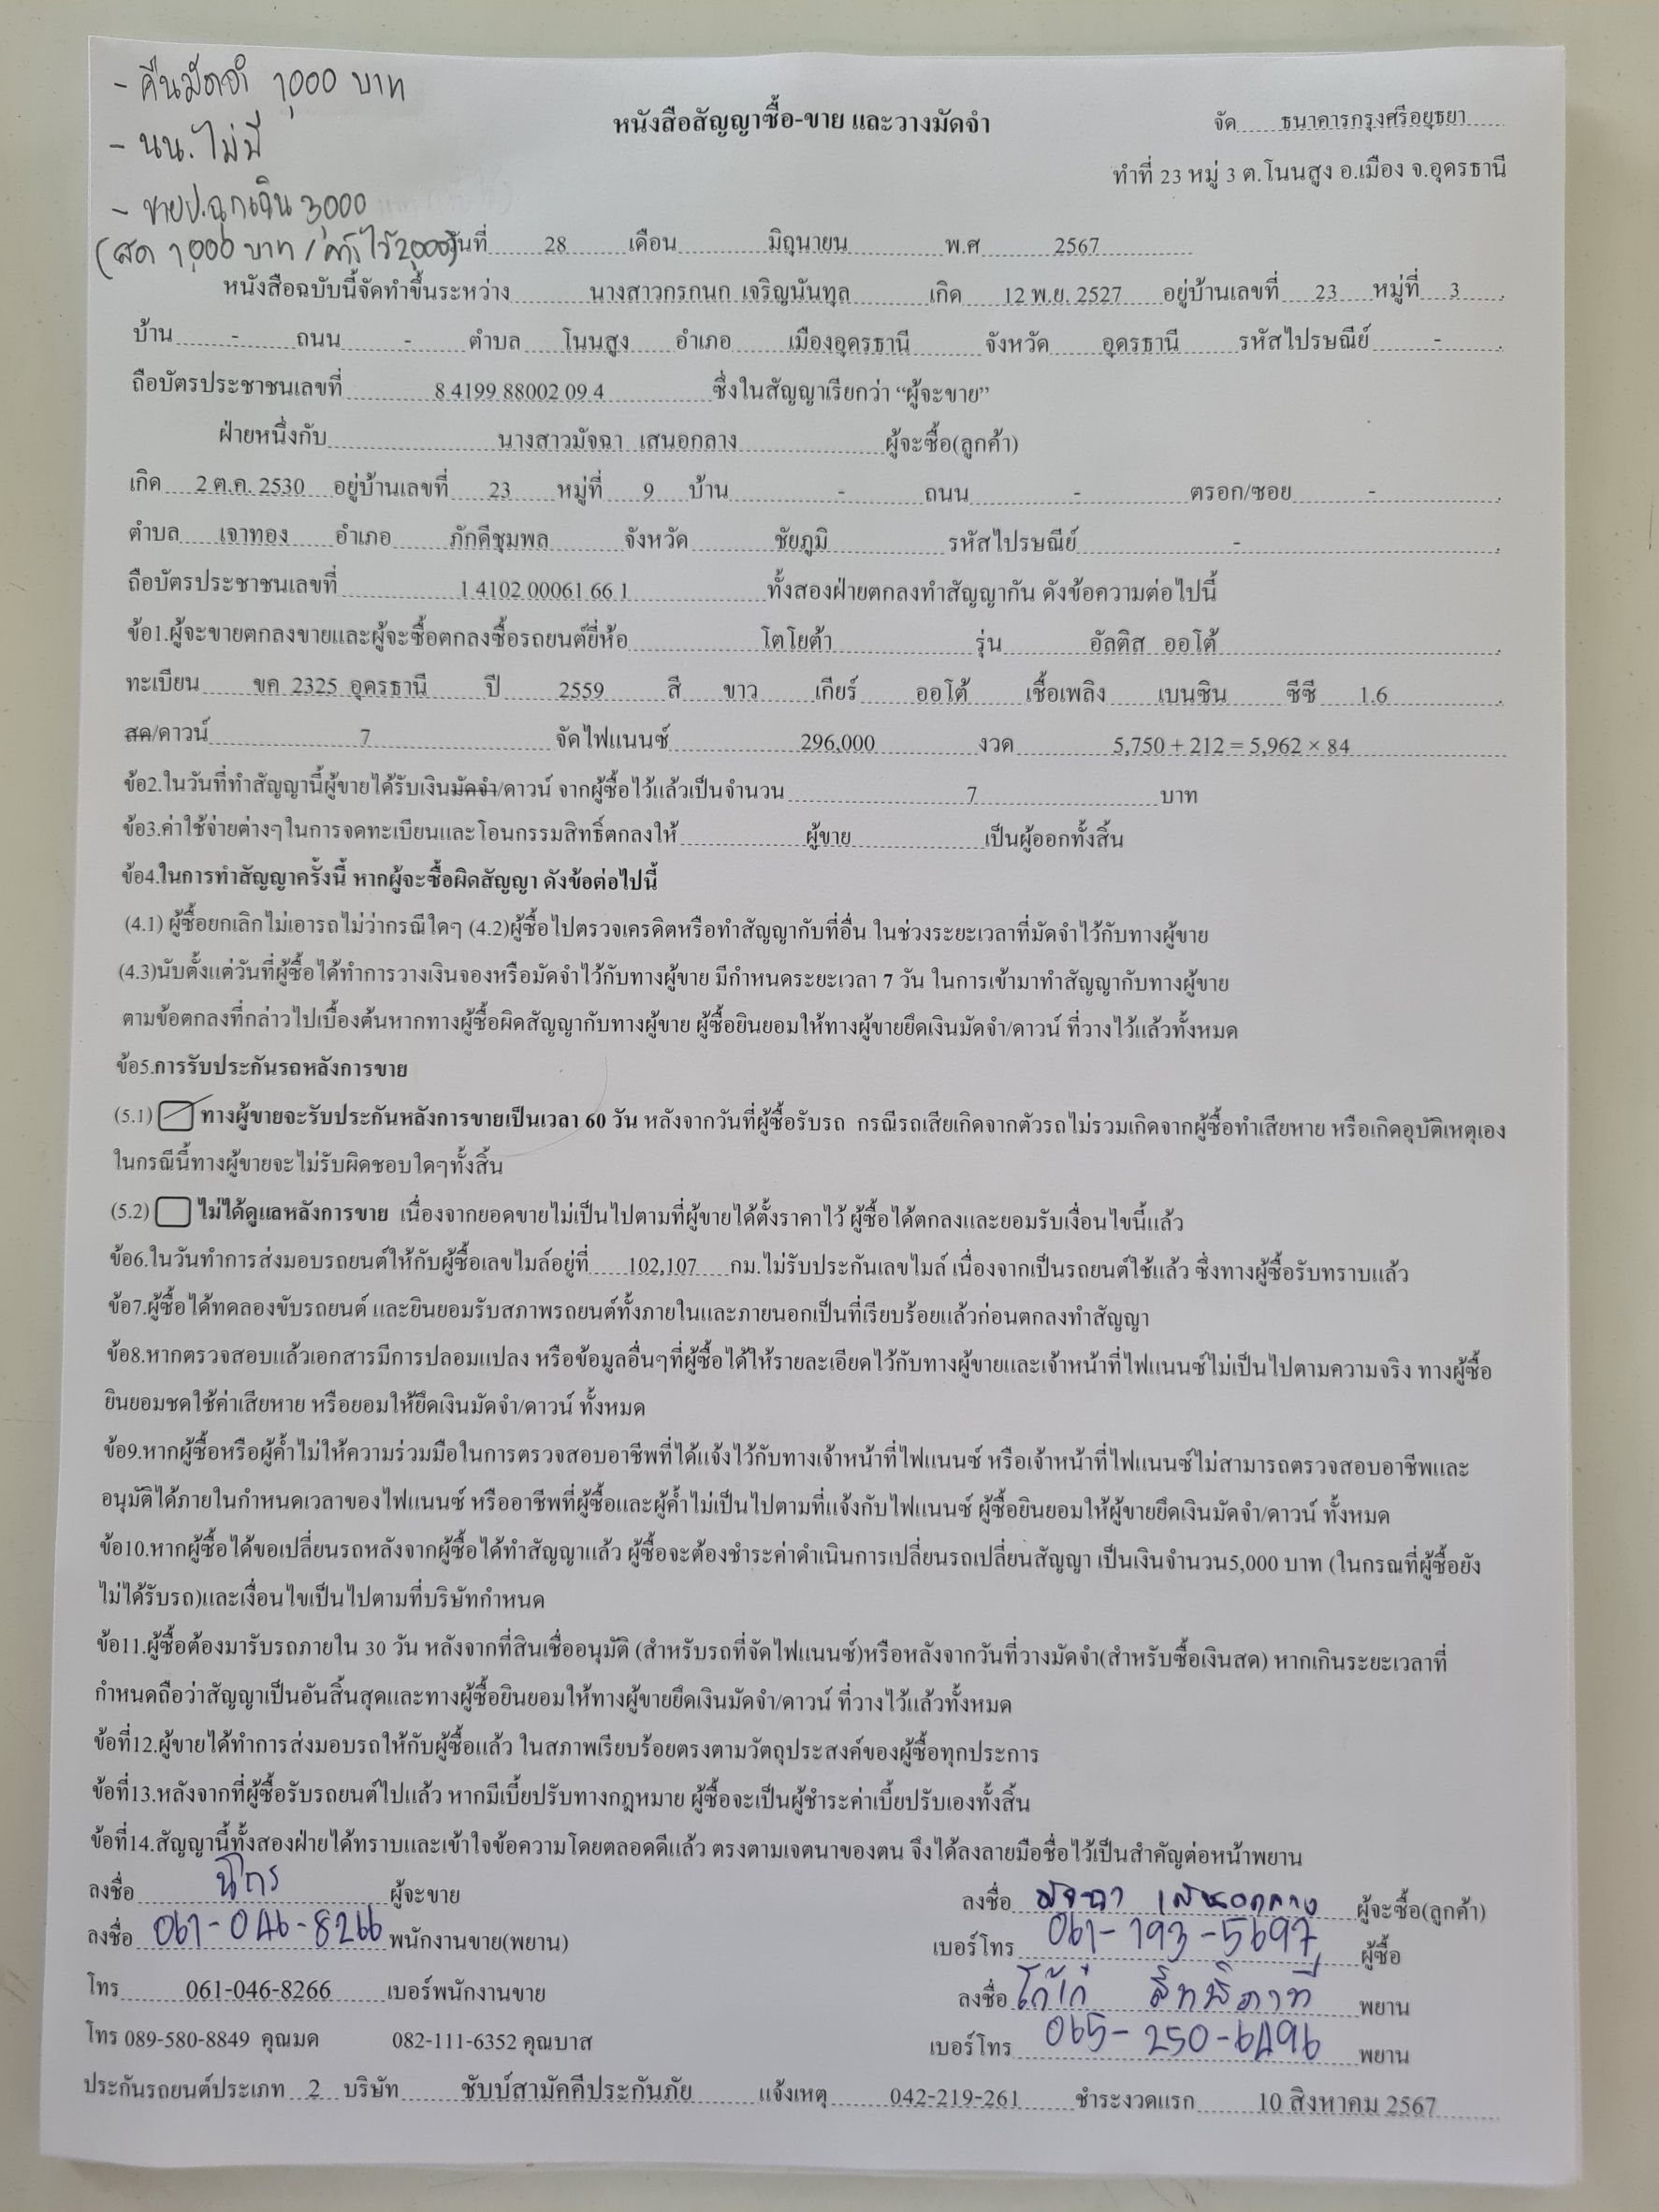 - คืนมัดจำ 1,000 บาท
- นน. ไม่มี
- ขายป.ฉุกเฉิน 3,000
(สด 1,000 บาท / ค้างไว้ 2,000)
หนังสือสัญญาซื้อ-ขาย และวางมัดจำ จัด ธนาคารกรุงศรีอยุธยา
ทำที่ 23 หมู่ 3 ต.โนนสูง อ.เมือง จ.อุดรธานี
วันที่ 28 เดือน มิถุนายน พ.ศ 2567
หนังสือฉบับนี้จัดทำขึ้นระหว่าง นางสาวกรกนก เจริญนันทุล เกิด 12 พ.ย. 2527 อยู่บ้านเลขที่ 23 หมู่ที่ 3
บ้าน - ถนน - ตำบล โนนสูง อำเภอ เมืองอุดรธานี จังหวัด อุดรธานี รหัสไปรษณีย์ -
ถือบัตรประชาชนเลขที่ 8 4199 88002 09 4 ซึ่งในสัญญาเรียกว่า “ผู้จะขาย”
ฝ่ายหนึ่งกับ นางสาวมัจฉา เสนอกลาง ผู้จะซื้อ(ลูกค้า)
เกิด 2 ต.ค. 2530 อยู่บ้านเลขที่ 23 หมู่ที่ 9 บ้าน - ถนน - ตรอก/ซอย -
ตำบล เจาทอง อำเภอ ภักดีชุมพล จังหวัด ชัยภูมิ รหัสไปรษณีย์ -
ถือบัตรประชาชนเลขที่ 1 4102 00061 66 1 ทั้งสองฝ่ายตกลงทำสัญญากัน ดังข้อความต่อไปนี้
ข้อ1.ผู้จะขายตกลงขายและผู้จะซื้อตกลงซื้อรถยนต์ยี่ห้อ โตโยต้า รุ่น อัลติส ออโต้
ทะเบียน ขค 2325 อุดรธานี ปี 2559 สี ขาว เกียร์ ออโต้ เชื้อเพลิง เบนซิน ซีซี 1.6
สด/ดาวน์ 7 จัดไฟแนนซ์ 296,000 งวด 5,750 + 212 = 5,962 × 84
ข้อ2.ในวันที่ทำสัญญานี้ผู้ขายได้รับเงินมัดจำ/ดาวน์ จากผู้ซื้อไว้แล้วเป็นจำนวน 7 บาท
ข้อ3.ค่าใช้จ่ายต่างๆในการจดทะเบียนและโอนกรรมสิทธิ์ตกลงให้ ผู้ขาย เป็นผู้ออกทั้งสิ้น
ข้อ4.ในการทำสัญญาครั้งนี้ หากผู้จะซื้อผิดสัญญา ดังข้อต่อไปนี้
(4.1) ผู้ซื้อยกเลิกไม่เอารถไม่ว่ากรณีใดๆ (4.2)ผู้ซื้อไปตรวจเครดิตหรือทำสัญญากับที่อื่น ในช่วงระยะเวลาที่มัดจำไว้กับทางผู้ขาย
(4.3)นับตั้งแต่วันที่ผู้ซื้อได้ทำการวางเงินจองหรือมัดจำไว้กับทางผู้ขาย มีกำหนดระยะเวลา 7 วัน ในการเข้ามาทำสัญญากับทางผู้ขาย
ตามข้อตกลงที่กล่าวไปเบื้องต้นหากทางผู้ซื้อผิดสัญญากับทางผู้ขาย ผู้ซื้อยินยอมให้ทางผู้ขายยึดเงินมัดจำ/ดาวน์ ที่วางไว้แล้วทั้งหมด
ข้อ5.การรับประกันรถหลังการขาย
(5.1) ทางผู้ขายจะรับประกันหลังการขายเป็นเวลา 60 วัน หลังจากวันที่ผู้ซื้อรับรถ กรณีรถเสียเกิดจากตัวรถไม่รวมเกิดจากผู้ซื้อทำเสียหาย หรือเกิดอุบัติเหตุเอง
ในกรณีนี้ทางผู้ขายจะไม่รับผิดชอบใดๆทั้งสิ้น
(5.2) ไม่ได้ดูแลหลังการขาย เนื่องจากยอดขายไม่เป็นไปตามที่ผู้ขายได้ตั้งราคาไว้ ผู้ซื้อได้ตกลงและยอมรับเงื่อนไขนี้แล้ว
ข้อ6.ในวันทำการส่งมอบรถยนต์ให้กับผู้ซื้อเลขไมล์อยู่ที่ 102,107 กม.ไม่รับประกันเลขไมล์ เนื่องจากเป็นรถยนต์ใช้แล้ว ซึ่งทางผู้ซื้อรับทราบแล้ว
ข้อ7.ผู้ซื้อได้ทดลองขับรถยนต์ และยินยอมรับสภาพรถยนต์ทั้งภายในและภายนอกเป็นที่เรียบร้อยแล้วก่อนตกลงทำสัญญา
ข้อ8.หากตรวจสอบแล้วเอกสารมีการปลอมแปลง หรือข้อมูลอื่นๆที่ผู้ซื้อได้ให้รายละเอียดไว้กับทางผู้ขายและเจ้าหน้าที่ไฟแนนซ์ไม่เป็นไปตามความจริง ทางผู้ซื้อ
ยินยอมชดใช้ค่าเสียหาย หรือยอมให้ยึดเงินมัดจำ/ดาวน์ ทั้งหมด
ข้อ9.หากผู้ซื้อหรือผู้ค้ำไม่ให้ความร่วมมือในการตรวจสอบอาชีพที่ได้แจ้งไว้กับทางเจ้าหน้าที่ไฟแนนซ์ หรือเจ้าหน้าที่ไฟแนนซ์ไม่สามารถตรวจสอบอาชีพและ
อนุมัติได้ภายในกำหนดเวลาของไฟแนนซ์ หรืออาชีพที่ผู้ซื้อและผู้ค้ำไม่เป็นไปตามที่แจ้งกับไฟแนนซ์ ผู้ซื้อยินยอมให้ผู้ขายยึดเงินมัดจำ/ดาวน์ ทั้งหมด
ข้อ10.หากผู้ซื้อได้ขอเปลี่ยนรถหลังจากผู้ซื้อได้ทำสัญญาแล้ว ผู้ซื้อจะต้องชำระค่าดำเนินการเปลี่ยนรถเปลี่ยนสัญญา เป็นเงินจำนวน5,000 บาท (ในกรณที่ผู้ซื้อยัง
ไม่ได้รับรถ)และเงื่อนไขเป็นไปตามที่บริษัทกำหนด
ข้อ11.ผู้ซื้อต้องมารับรถภายใน 30 วัน หลังจากที่สินเชื่ออนุมัติ (สำหรับรถที่จัดไฟแนนซ์)หรือหลังจากวันที่วางมัดจำ(สำหรับซื้อเงินสด) หากเกินระยะเวลาที่
กำหนดถือว่าสัญญาเป็นอันสิ้นสุดและทางผู้ซื้อยินยอมให้ทางผู้ขายยึดเงินมัดจำ/ดาวน์ ที่วางไว้แล้วทั้งหมด
ข้อที่12.ผู้ขายได้ทำการส่งมอบรถให้กับผู้ซื้อแล้ว ในสภาพเรียบร้อยตรงตามวัตถุประสงค์ของผู้ซื้อทุกประการ
ข้อที่13.หลังจากที่ผู้ซื้อรับรถยนต์ไปแล้ว หากมีเบี้ยปรับทางกฎหมาย ผู้ซื้อจะเป็นผู้ชำระค่าเบี้ยปรับเองทั้งสิ้น
ข้อที่14.สัญญานี้ทั้งสองฝ่ายได้ทราบและเข้าใจข้อความโดยตลอดดีแล้ว ตรงตามเจตนาของตน จึงได้ลงลายมือชื่อไว้เป็นสำคัญต่อหน้าพยาน
ลงชื่อ ผู้จะขาย ลงชื่อ มัจฉา เสนอกลาง ผู้จะซื้อ(ลูกค้า)
ลงชื่อ 061-046-8266 พนักงานขาย(พยาน) เบอร์โทร 061-193-5697 ผู้ซื้อ
โทร 061-046-8266 เบอร์พนักงานขาย ลงชื่อ พยาน
โทร 089-580-8849 คุณมด 082-111-6352 คุณบาส เบอร์โทร 065-250-6496 พยาน
ประกันรถยนต์ประเภท 2 บริษัท ชับบ์สามัคคีประกันภัย แจ้งเหตุ 042-219-261 ชำระงวดแรก 10 สิงหาคม 2567